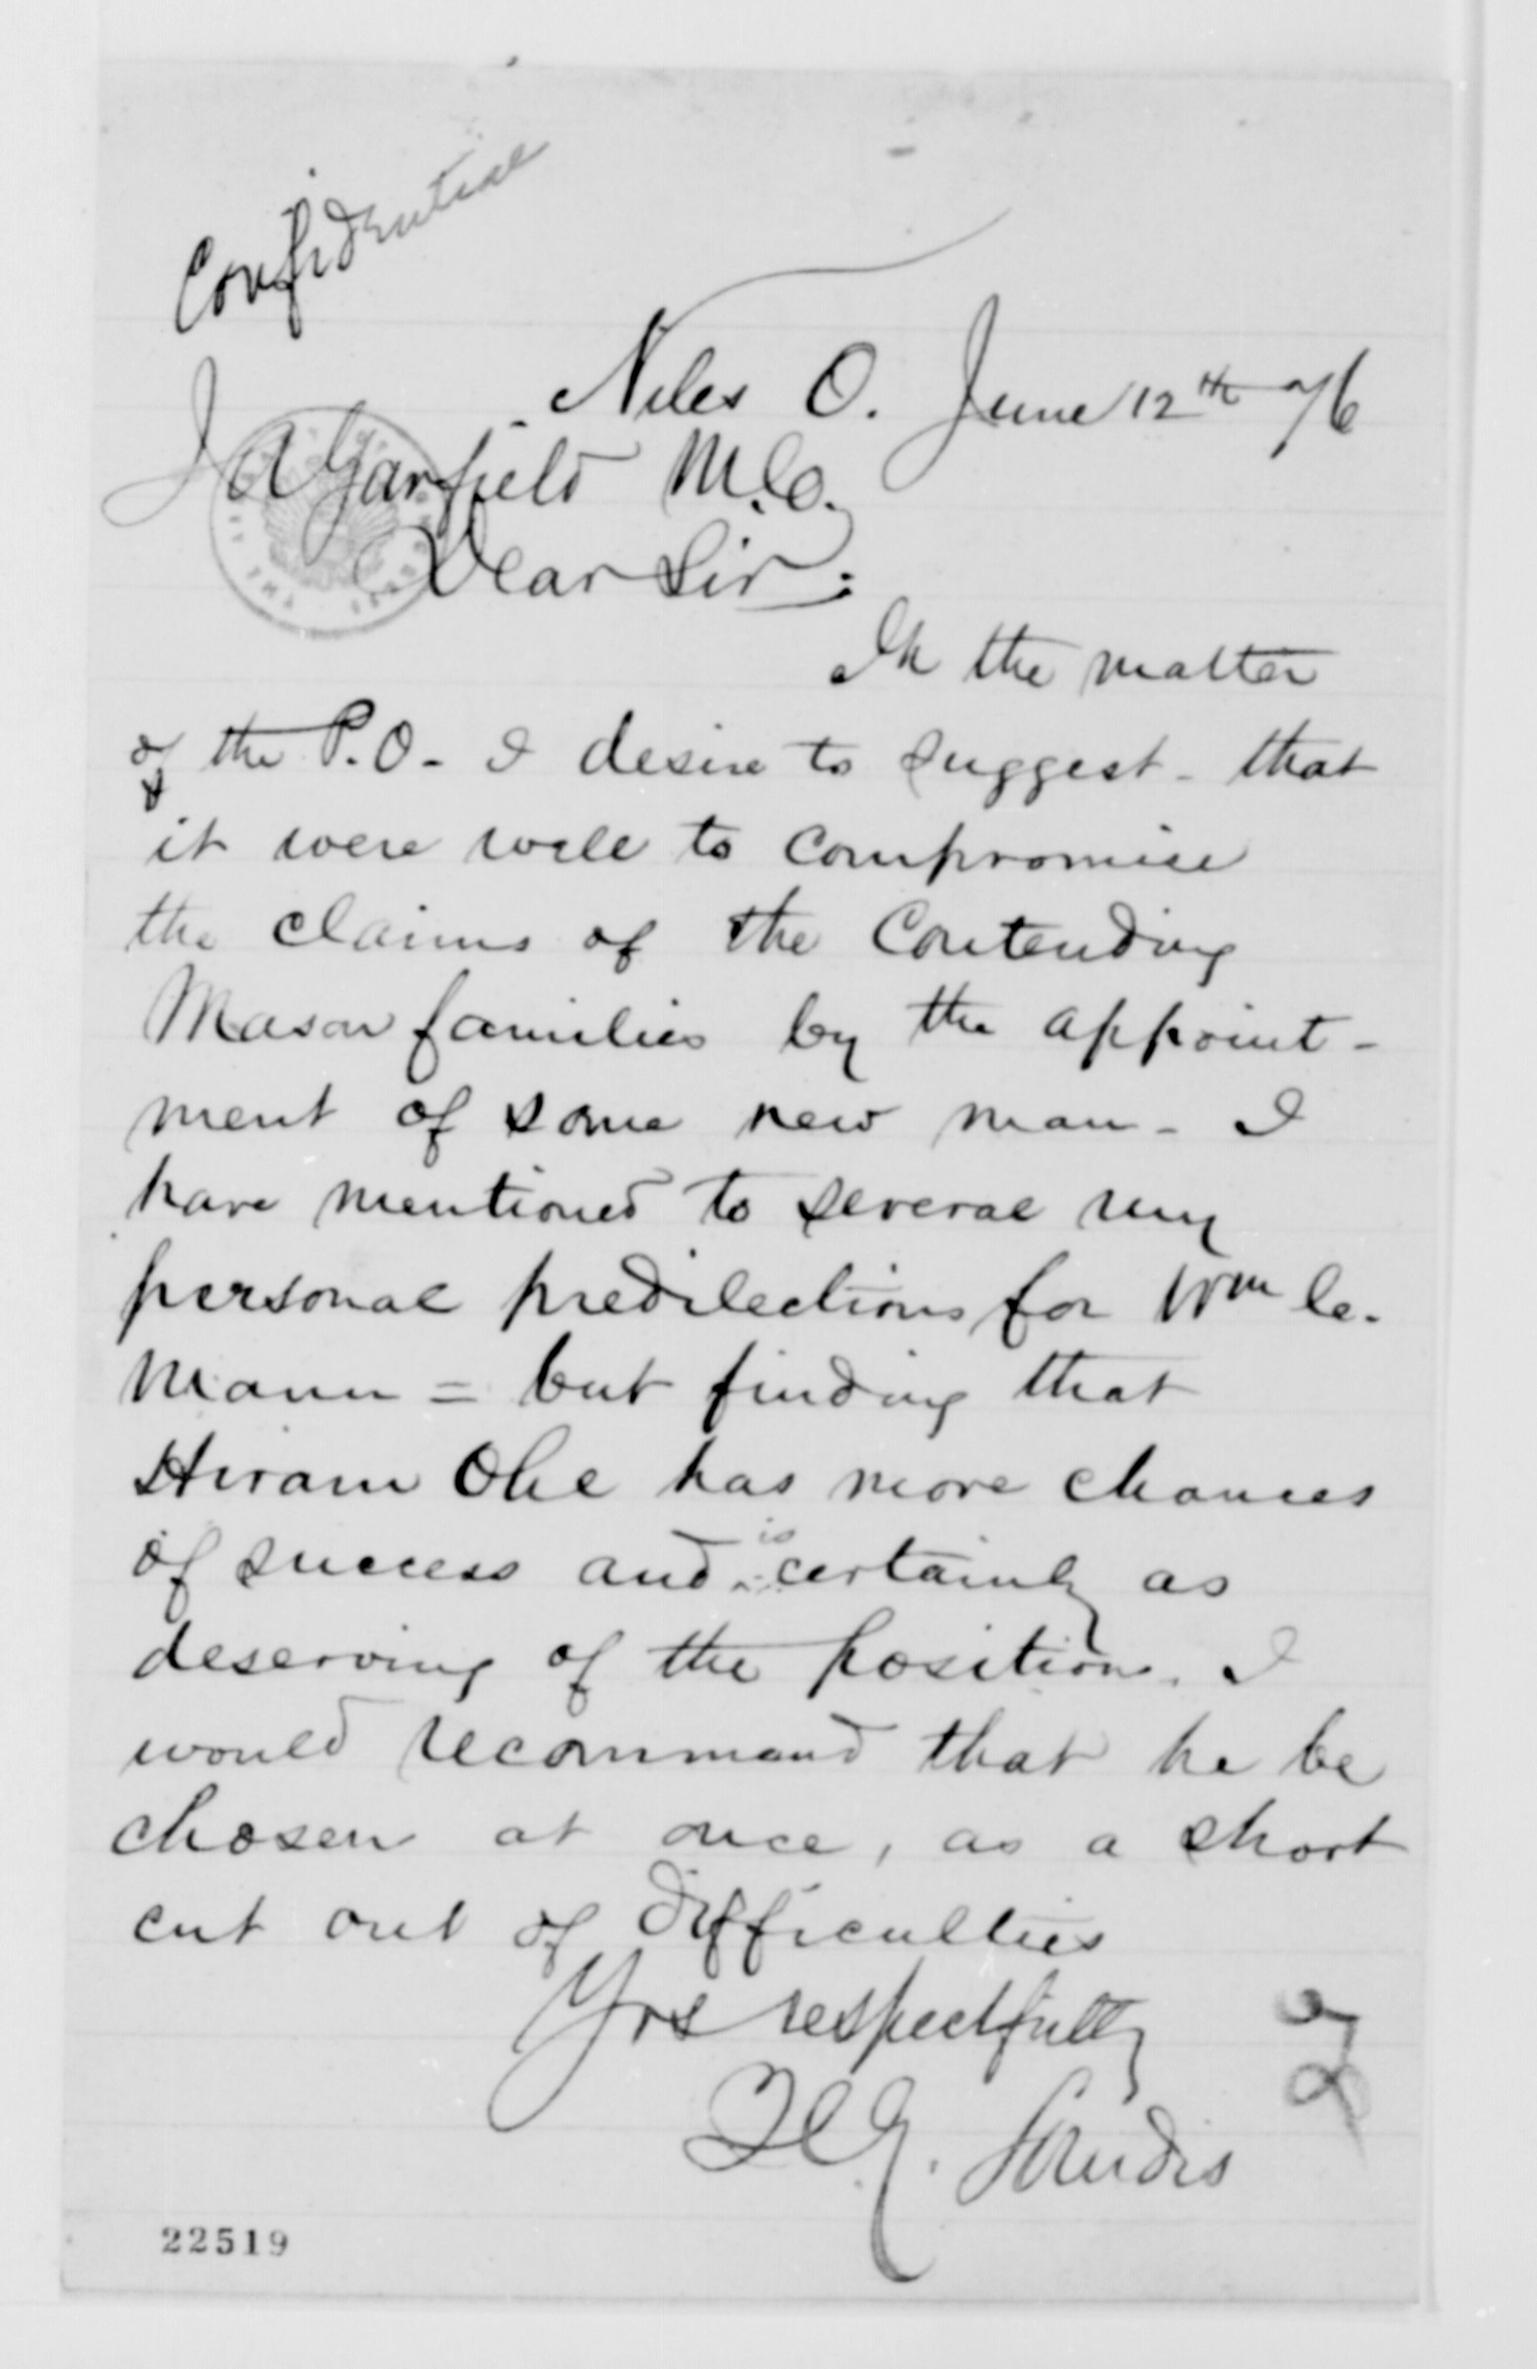 Confidential
Niles O. June 12th 76
J A Garfield M.C.
Dear Sir:
In the matter
of the P.O. - I desire to suggest - that
it were well to compromise
the claims of the Contending
Mason families by the appoint-
ment of some new man - I
have mentioned to several my
personal predilections for Wm C.
Mann = but finding that
Hiram Ohl has more chances
of success and is certainly as
deserving of the position. I
would recommand that he be
chosen at once, as a short
cut out of difficulties
Yrs respectfully
Landis
22519